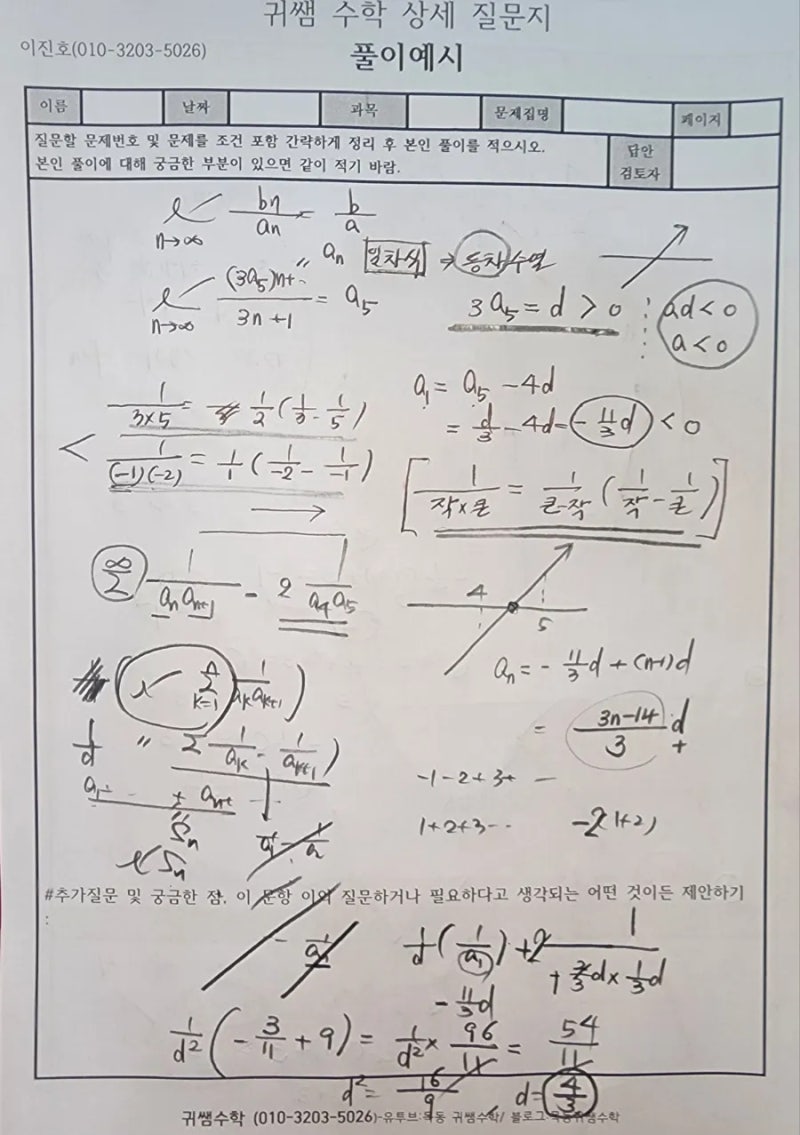 귀쌤 수학 상세 질문지
이진호(010-3203-5026)
풀이예시
이름 날짜 과목 문제집명 페이지
질문할 문제번호 및 문제를 조건 포함 간략하게 정리 후 본인 풀이를 적으시오.
본인 풀이에 대해 궁금한 부분이 있으면 같이 적기 바람.
답안
검토자
n→∞ bn/an = b/a
an 일차식 ⇒ 등차수열
n→∞ (3a₅)n+··/3n+1 = a₅
3a₅ = d > 0
ad < 0
a < 0
a₁ = a₅ - 4d
= d/3 - 4d = - 11/3 d < 0
1/3×5 = 1/2 (1/3 - 1/5)
1/(-1)(-2) = 1/1 (1/-2 - 1/-1)
[ 1/작×큰 = 1/큰-작 (1/작 - 1/큰) ]
∞ Σ 1/an an+1 - 2 1/a₄a₅
4
5
an = - 11/3 d + (n-1)d
= 3n-14/3 d
+
n Σ k=1 1/ak ak+1 )
1/d " Σ 1/ak - 1/ak+1 )
-1-2+3+ —
1+2+3-··
-2(1+2)
Sn
Sn
#추가질문 및 궁금한 점, 이 문항 이외 질문하거나 필요하다고 생각되는 어떤 것이든 제안하기
:
1/d (1/a₁) + 2 1/+ 2/3 d × 1/3 d
- 11/3 d
1/d² (- 3/11 + 9) = 1/d² × 96/11 = 54/11
d² = 16/9 d = 4/3
귀쌤수학 (010-3203-5026)-유투브:목동 귀쌤수학/ 블로그:목동귀쌤수학